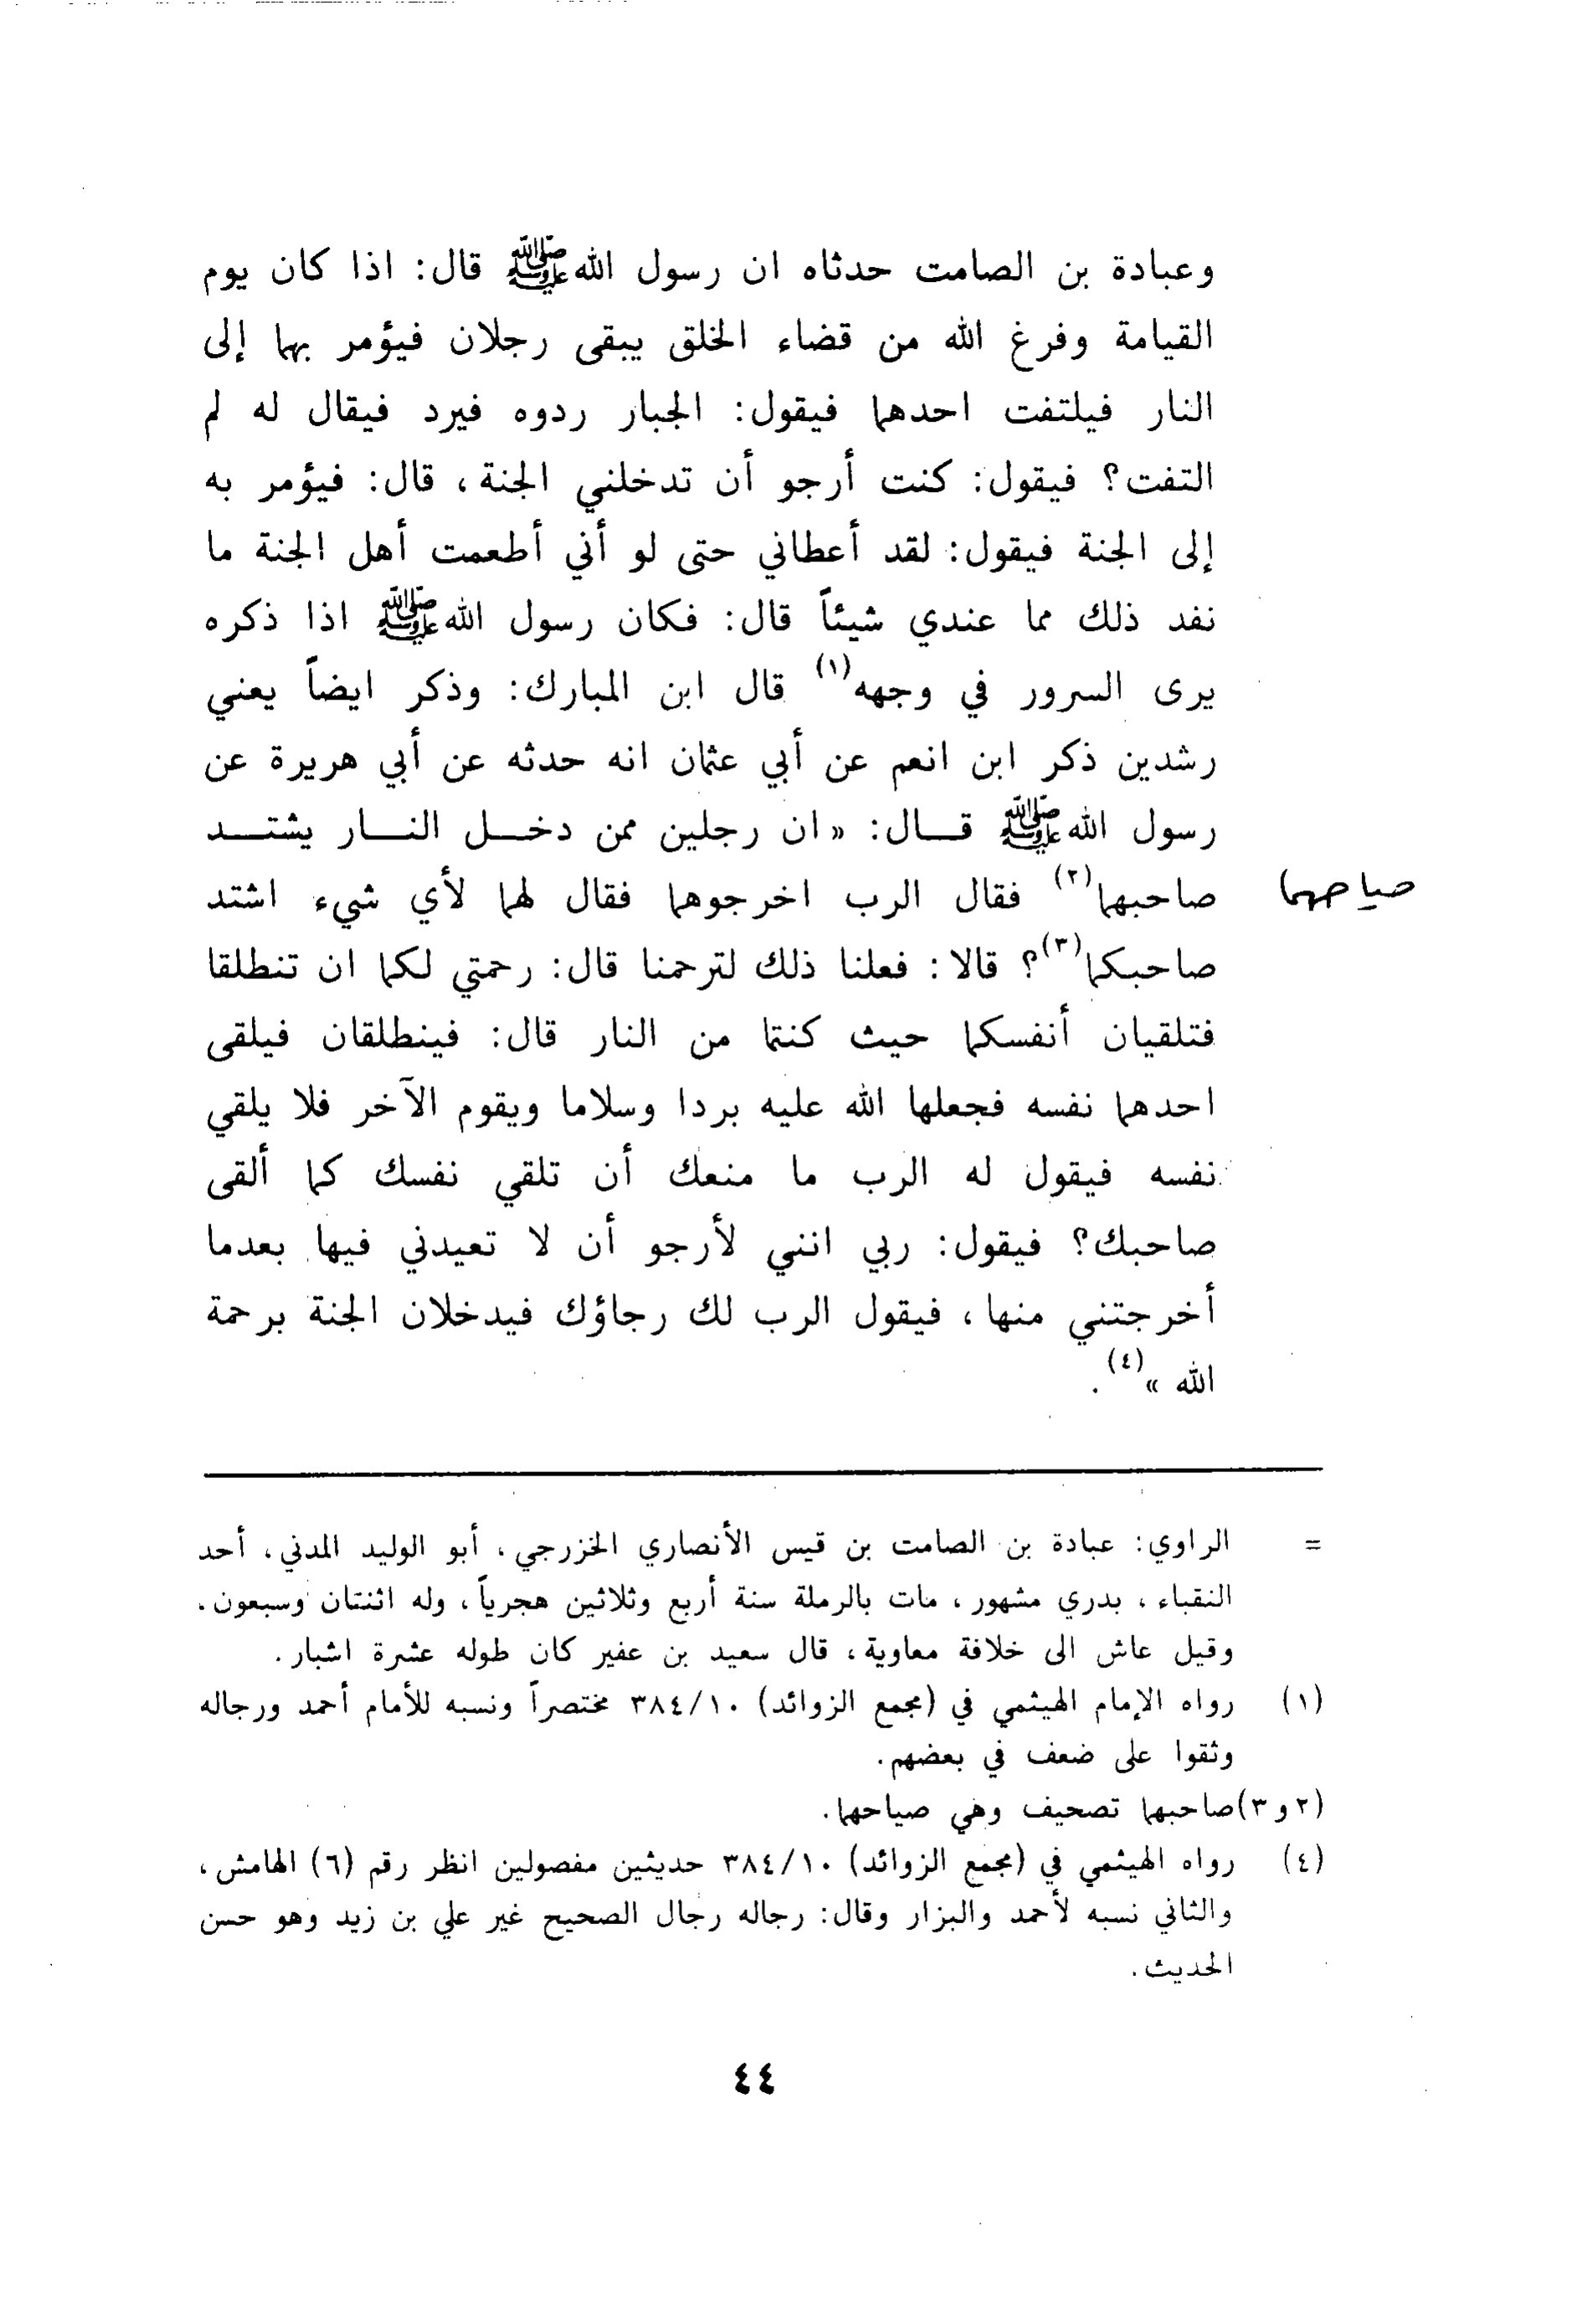 وعبادة بن الصامت حدثاه ان رسول الله ﷺ قال: اذا كان يوم
القيامة وفرغ الله من قضاء الخلق يبقى رجلان فيؤمر بهما إلى
النار فيلتفت احدهما فيقول: الجبار ردوه فيرد فيقال له لم
التفت؟ فيقول: كنت أرجو أن تدخلني الجنة، قال: فيؤمر به
إلى الجنة فيقول: لقد أعطاني حتى لو أني أطعمت أهل الجنة ما
نفد ذلك مما عندي شيئاً قال: فكان رسول الله ﷺ اذا ذكره
يرى السرور في وجهه(١) قال ابن المبارك: وذكر ايضاً يعني
رشدين ذكر ابن انعم عن أبي عثمان انه حدثه عن أبي هريرة عن
رسول الله ﷺ قـــال: « ان رجلين ممن دخـــل النـــار يشتـــد
صاحبهما(٢) فقال الرب اخرجوهما فقال لهما لأي شيء اشتد
صياحهما
صاحبكما(٣)؟ قالا: فعلنا ذلك لترحمنا قال: رحمتي لكما ان تنطلقا
فتلقيان أنفسكما حيث كنتما من النار قال: فينطلقان فيلقى
احدهما نفسه فجعلها الله عليه بردا وسلاما ويقوم الآخر فلا يلقي
نفسه فيقول له الرب ما منعك أن تلقي نفسك كما ألقى
صاحبك؟ فيقول: ربي انني لأرجو أن لا تعيدني فيها بعدما
أخرجتني منها، فيقول الرب لك رجاؤك فيدخلان الجنة برحمة
الله »(٤).
= الراوي: عبادة بن الصامت بن قيس الأنصاري الخزرجي، أبو الوليد المدني، أحد
النقباء، بدري مشهور، مات بالرملة سنة أربع وثلاثين هجرياً، وله اثنتان وسبعون.
وقيل عاش الى خلافة معاوية، قال سعيد بن عفير كان طوله عشرة اشبار.
(١) رواه الإمام الهيثمي في (مجمع الزوائد) ٣٨٤/١٠ مختصراً ونسبه للأمام أحمد ورجاله
وثقوا على ضعف في بعضهم.
(٢ و ٣) صاحبهما تصحيف وهي صياحهما.
(٤) رواه الهيثمي في (مجمع الزوائد) ٣٨٤/١٠ حديثين مفصولين انظر رقم (٦) الهامش،
والثاني نسبه لأحمد والبزار وقال: رجاله رجال الصحيح غير علي بن زيد وهو حسن
الحديث.
٤٤